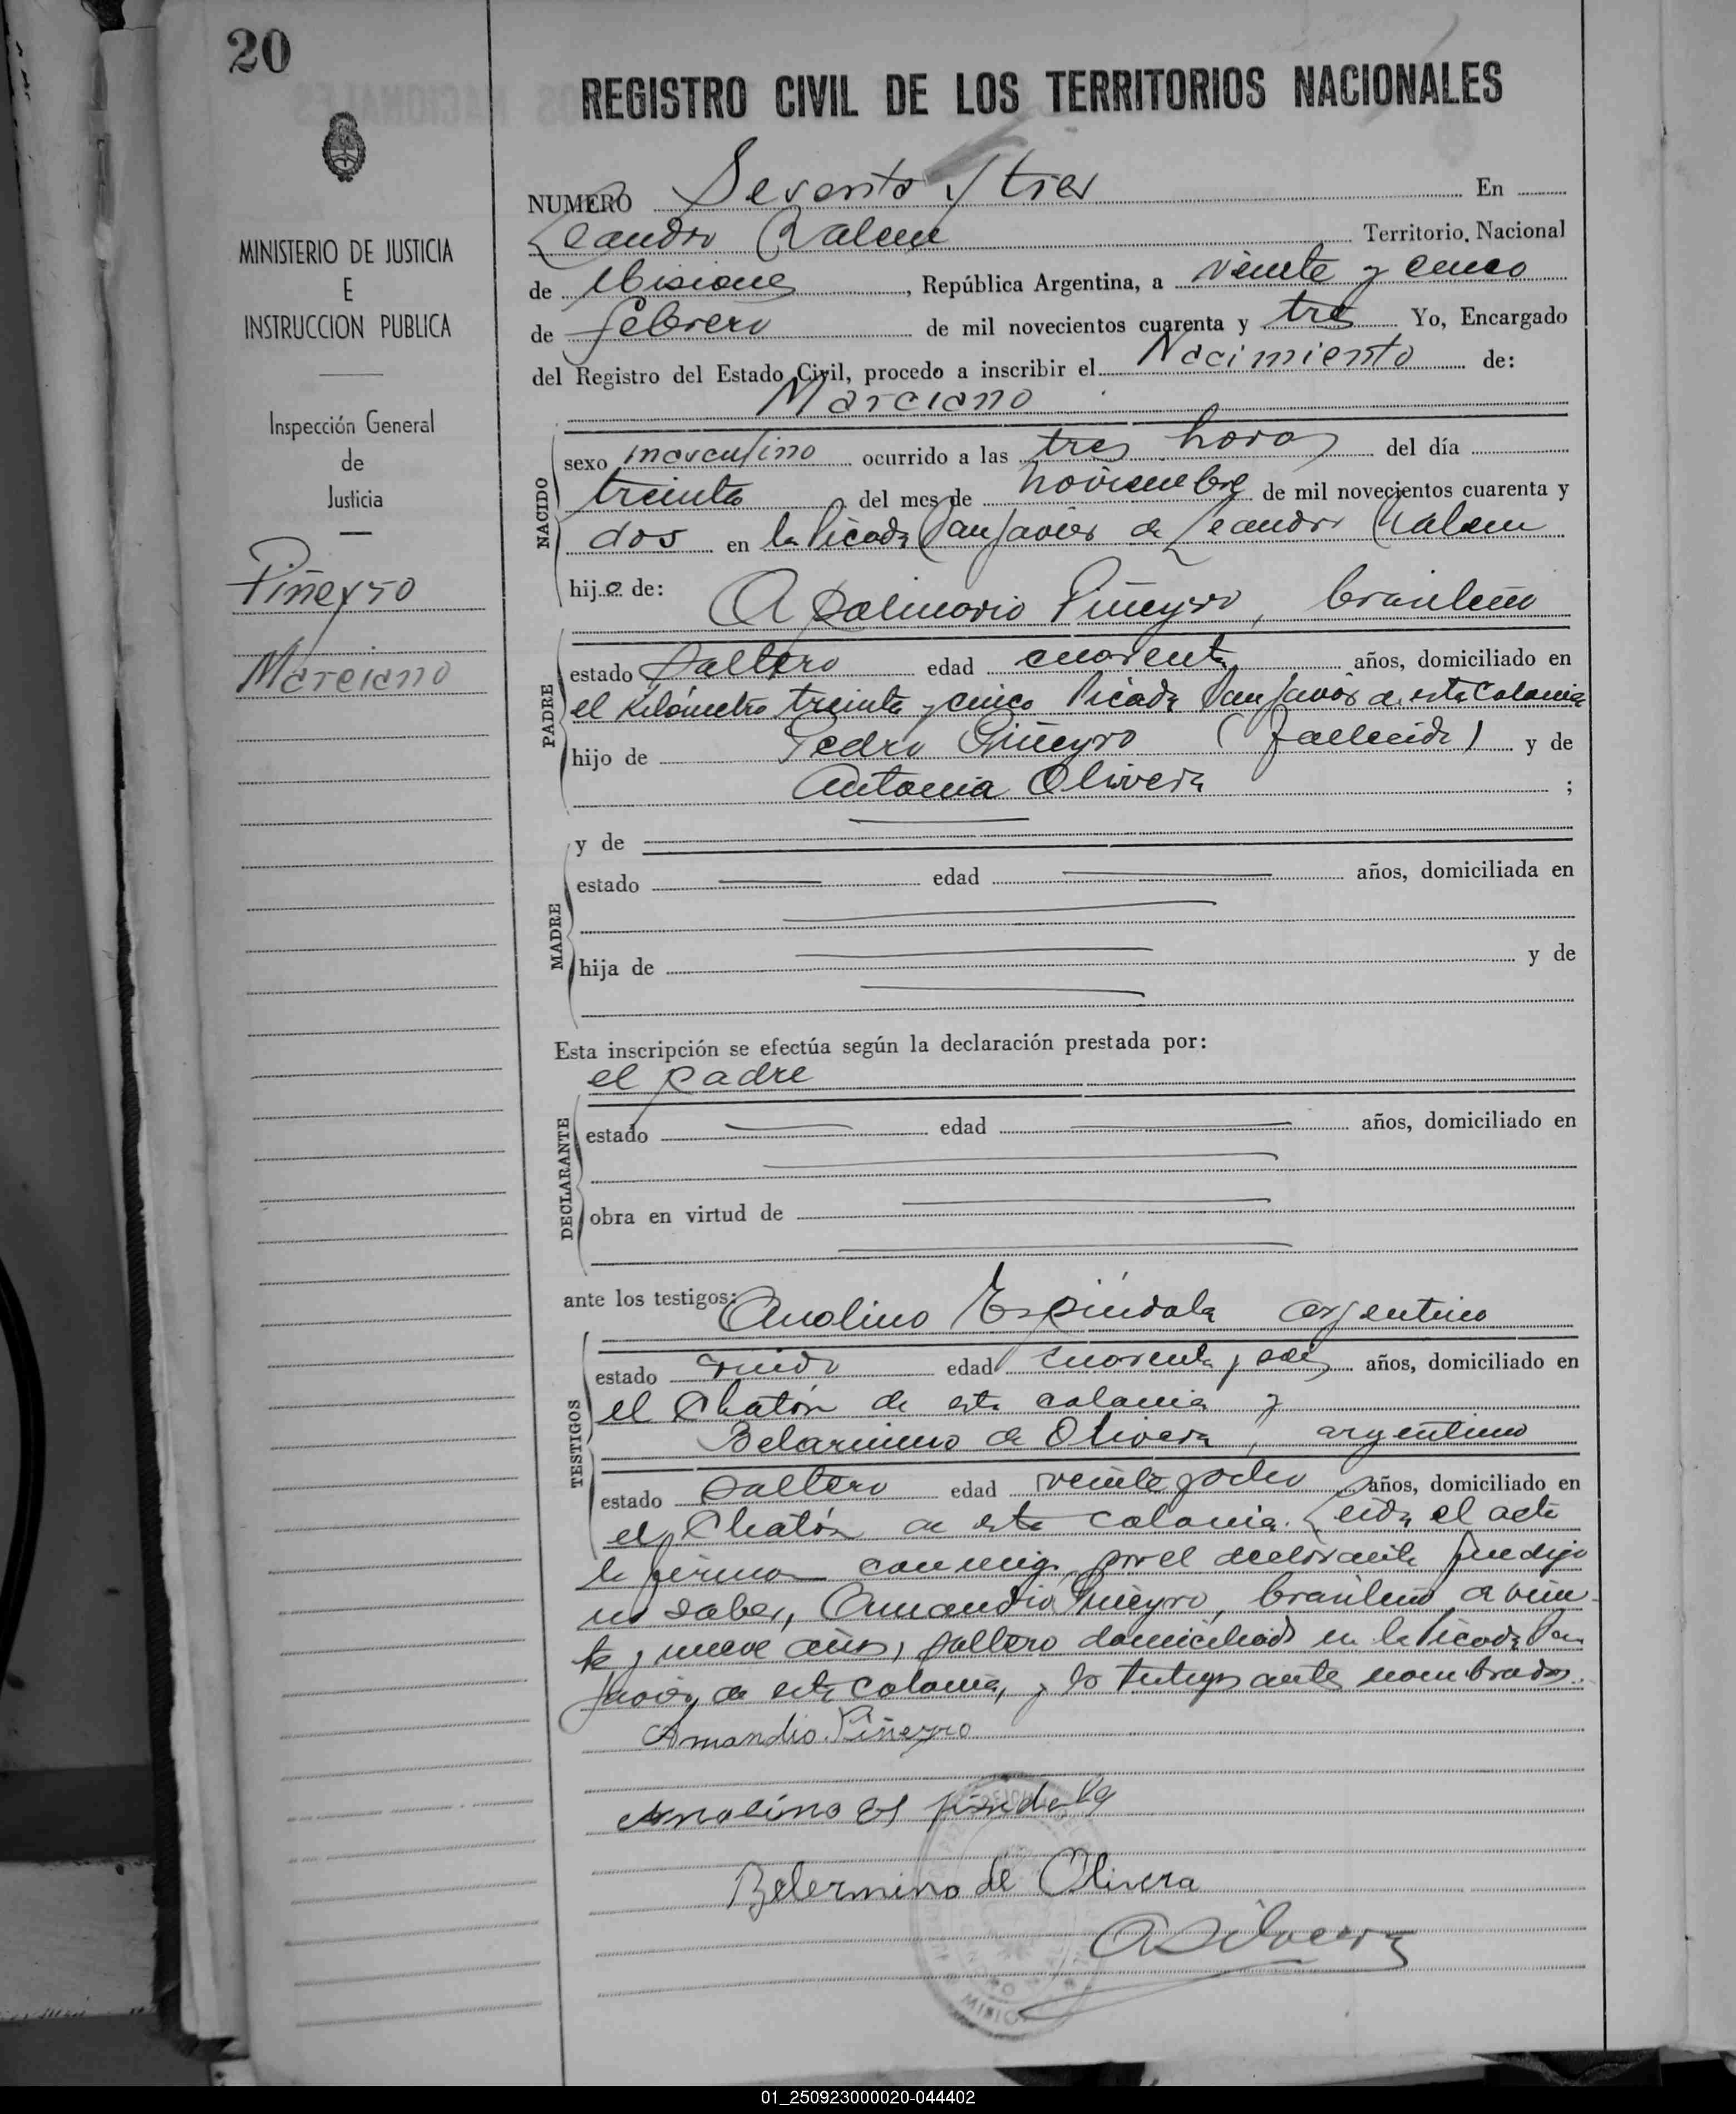 20
REGISTRO CIVIL DE LOS TERRITORIOS NACIONALES
MINISTERIO DE JUSTICIA
E
INSTRUCCION PUBLICA
Inspección General
de
Justicia
Piñeyro
Marciano
NUMERO Sesenta y tres En
Leandro Alem Territorio Nacional
de Misiones, República Argentina, a veinte y cinco
de febrero de mil novecientos cuarenta y tres Yo, Encargado
del Registro del Estado Civil, procedo a inscribir el Nacimiento de:
Marciano
NACIDO
sexo masculino ocurrido a las tres horas del día
treinta del mes de noviembre de mil novecientos cuarenta y
dos en la Picada San Javier de Leandro Alem
hijo de: Piñeyro, brasileño
PADRE
estado soltero edad cuarenta años, domiciliado en
el kilómetro treinta y cinco Picada San Javier de esta Colonia
hijo de Pedro Piñeyro (fallecido) y de
Antonia Olivera ;
y de
MADRE
estado edad años, domiciliada en
hija de y de
Esta inscripción se efectúa según la declaración prestada por:
el padre
DECLARANTE
estado edad años, domiciliado en
obra en virtud de
ante los testigos: Analino Espíndola argentino
TESTIGOS
estado edad cuarenta y seis años, domiciliado en
el Chatón de esta colonia y
Belarmino de Olivera, argentino
estado soltero edad veinte y ocho años, domiciliado en
el Chatón de esta colonia. Leida el acta
la firma conmigo, por el declarante que dijo
no saber, Amandio Piñeyro, brasileño, de vein-
te y nueve años, soltero domiciliado en la Picada San
Javier, de esta Colonia, y los testigos antes nombrados.
Amandio Piñeyro
Analino Espindola
Belermino de Olivera
MISIONES
01_250923000020-044402